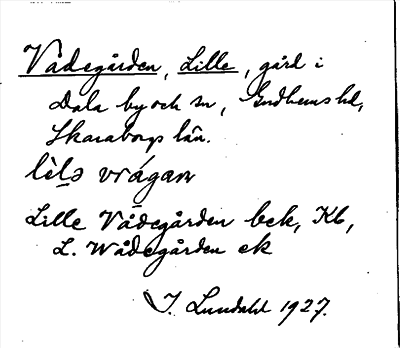 Vådegården, Lille, gård i
Dala by och sn, Gudhems hd,
Skaraborgs län.
Lille Vådegården bek, Kb,
L. Wådegården ek
I. Lundahl 1927.